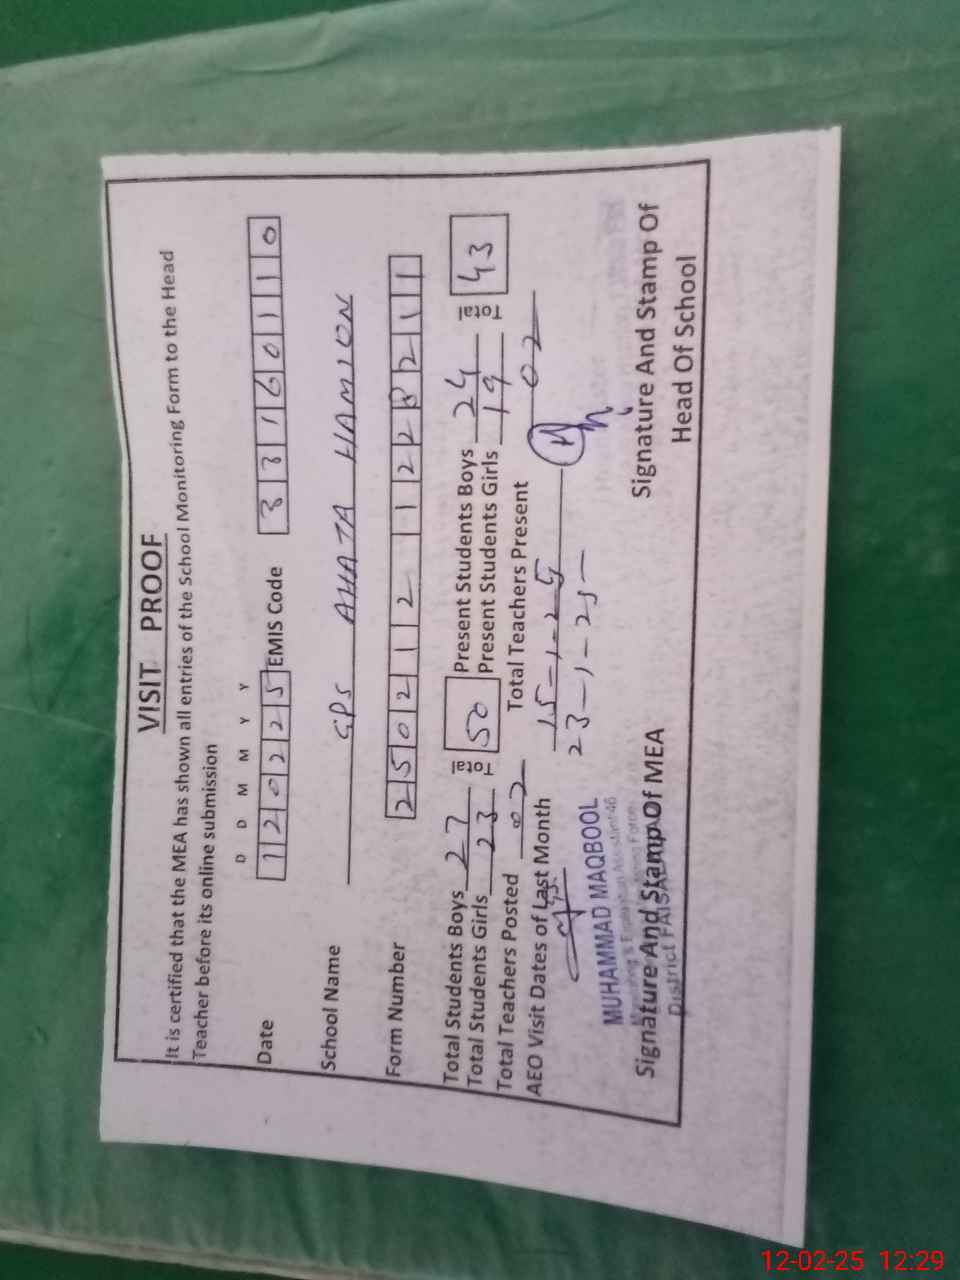 VISIT PROOF
It is certified that the MEA has shown all entries of the School Monitoring Form to the Head
Teacher before its online submission
D D M M Y Y
Date 120225 EMIS Code 33160110
School Name GPS AHATA HAMION
Form Number 2502121228211
Total Students Boys 27 Total 50 Present Students Boys 24 Total 43
Total Students Girls 23 Present Students Girls 19
Total Teachers Posted 02 Total Teachers Present 02
AEO Visit Dates of Last Month 15-1-25
23-1-25
MUHAMMAD MAQBOOL
Signature And Stamp Of MEA Signature And Stamp Of
District Head Of School
12-02-25 12:29